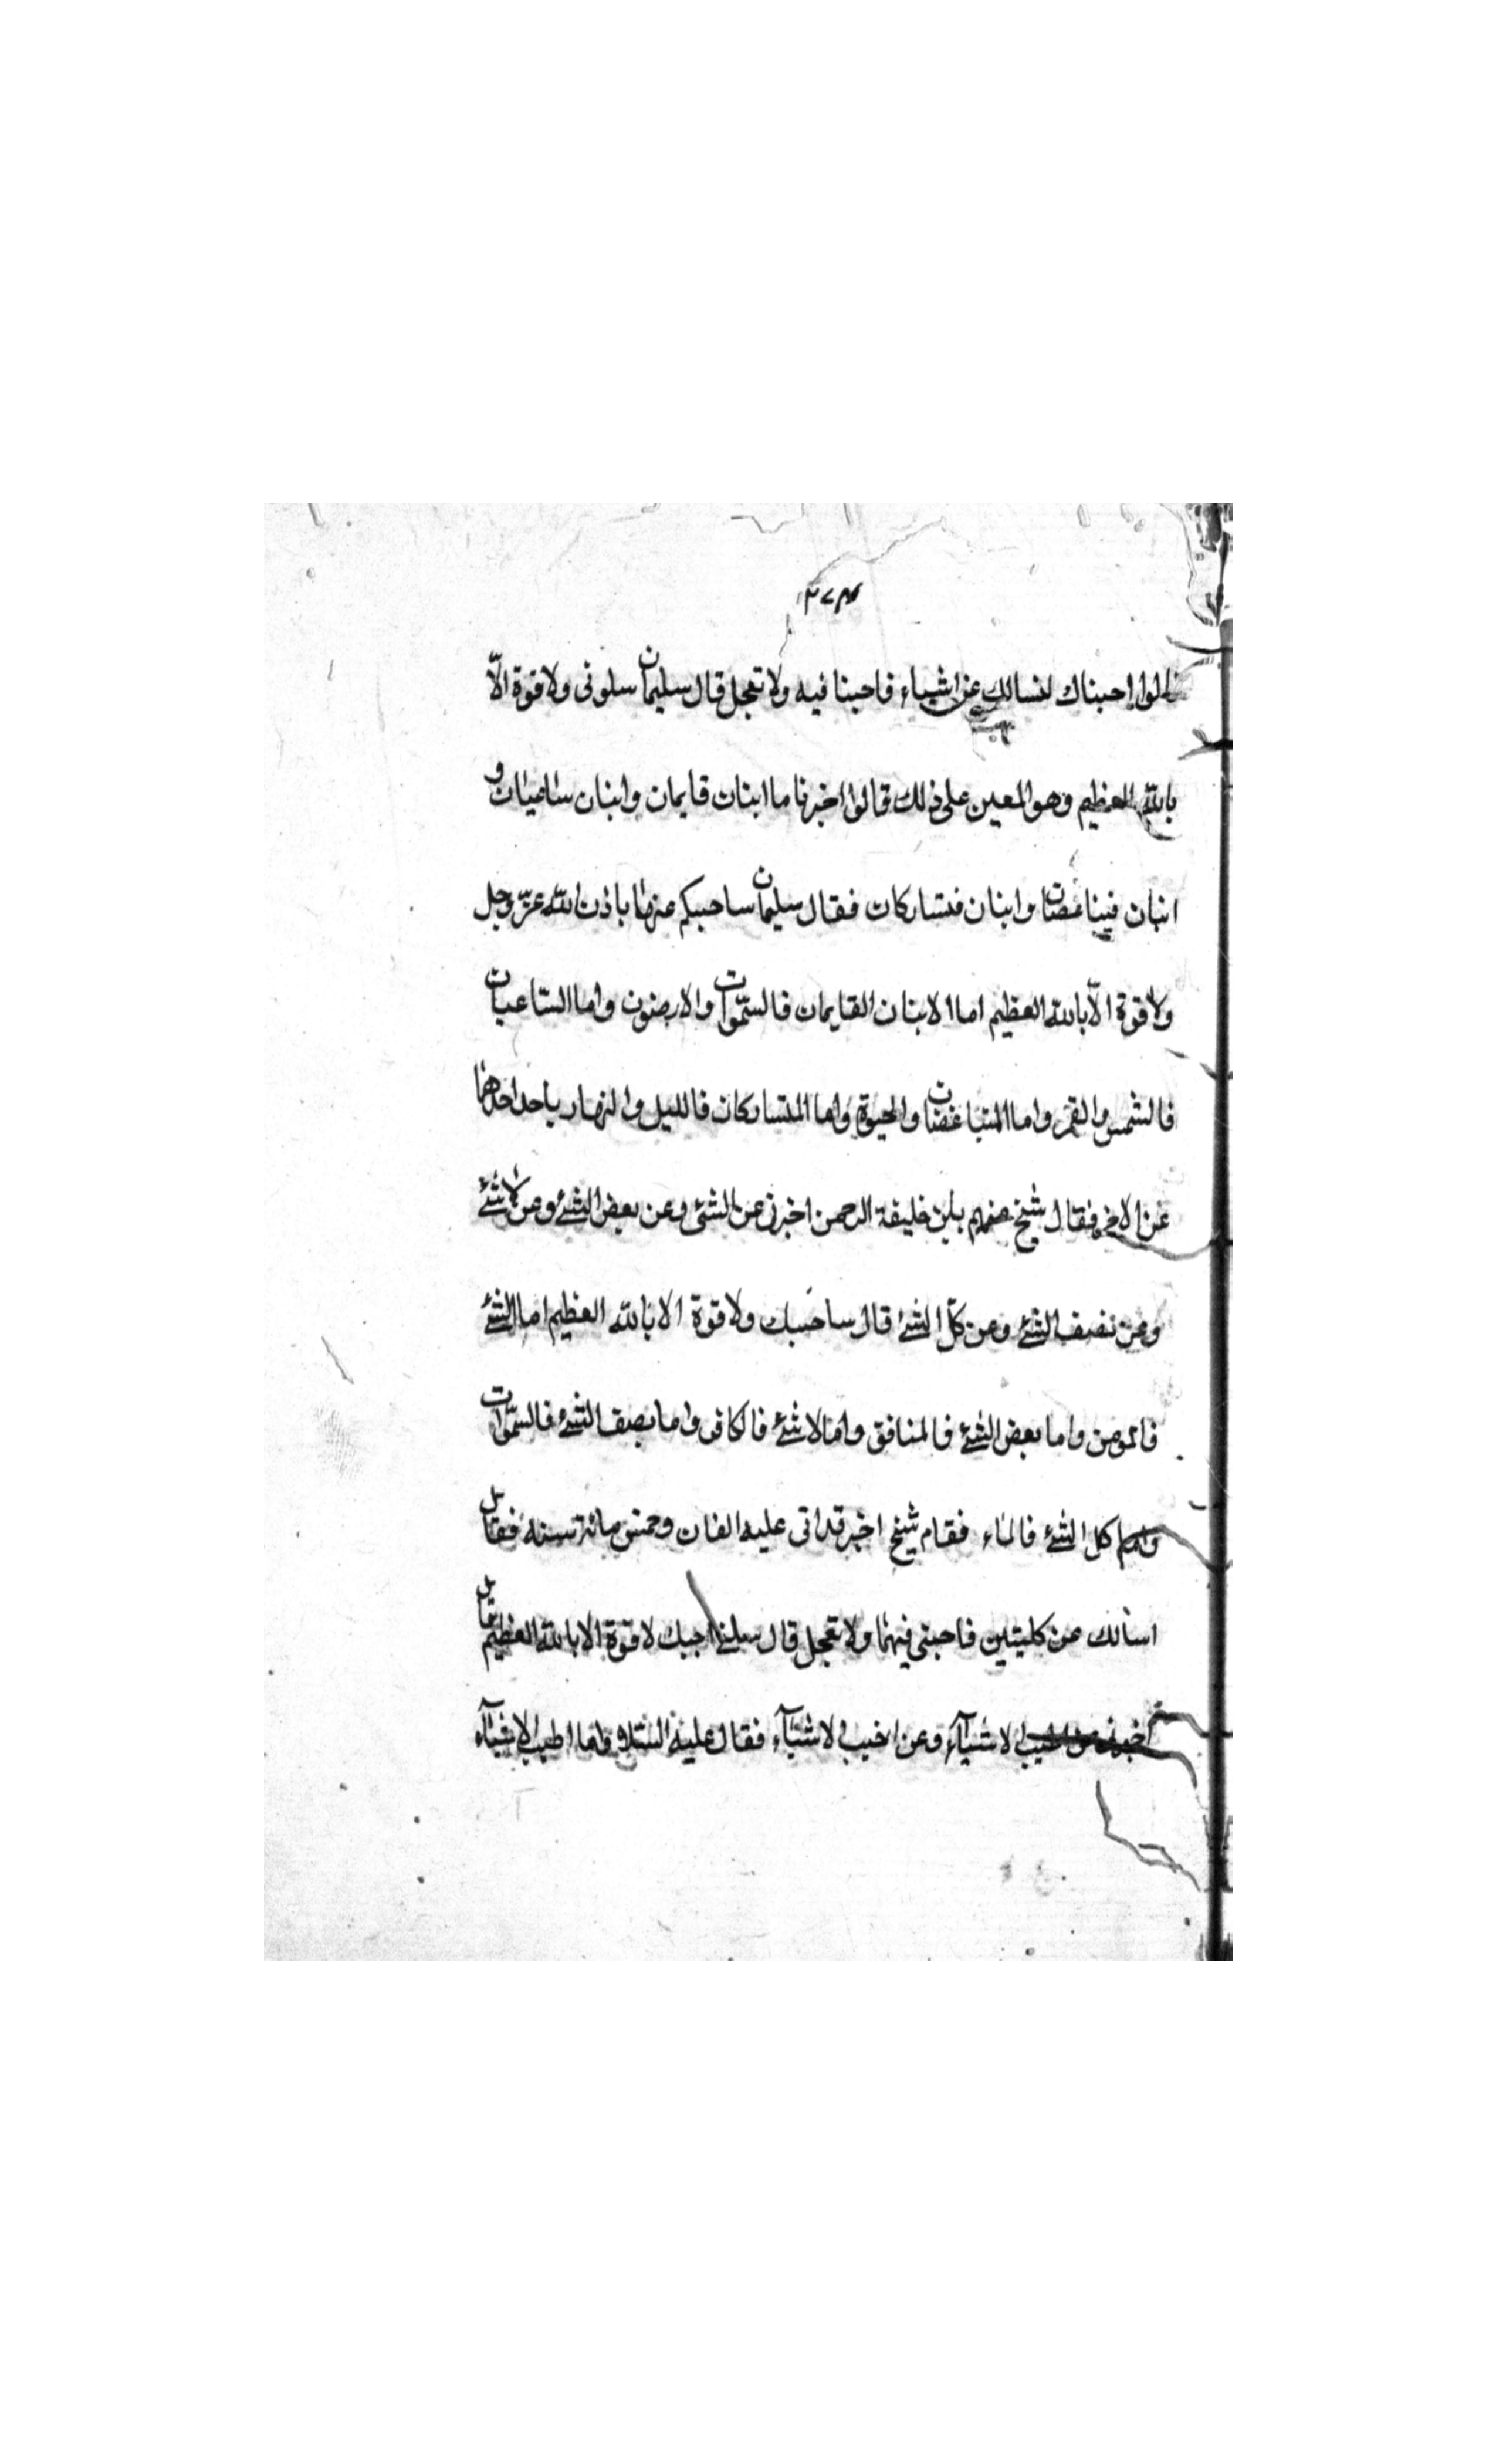 ٣٧٣
قالوا احبناك لنسالك عن اشياء فاحبنا فيه ولا تعجل قال سليمان سلونى ولا قوة الّا
بالله العظيم وهو المعين على ذلك قالوا اخبرنا ما ابنان قايمان وابنان ساعيان و
ابنان متباغضان وابنان متشاركان فقال سليمان ساحبيكم عنها باذن الله عزّ وجل
ولا قوة الّا بالله العظيم اما الابنان القايمان فالسّموات والارضون واما السّاعيان
فالشمس والقمر واما المتباغضان والحيوة واما المتشاركان فالليل والنهار ياخذ احدهما
عن الاخر فقال شيخ منهم يابن خليفة الرحمن اخبرنى عن الشئ وعن بعض الشئ وعن لا شئ
وعن نصف الشئ وعن كلّ الشئ قال ساحبيك ولا قوة الا بالله العظيم اما الشئ
فالمومن واما بعض الشئ فالمنافق واما لا شئ فالكافر واما نصف الشئ فالسّموات
واما كل الشئ فالماء فقام شيخ اخر قد اتى عليه الفان وخمس مائة سنة فقال
اسالك عن كلمتين فاحبنى فيهما ولا تعجل قال سلنى اجبك لا قوة الا بالله العظيم قال
اخبرنى عن اطيب الاشيآء وعن اخبث الاشيآء فقال عليه السّلام فاما اطيب الاشيآء